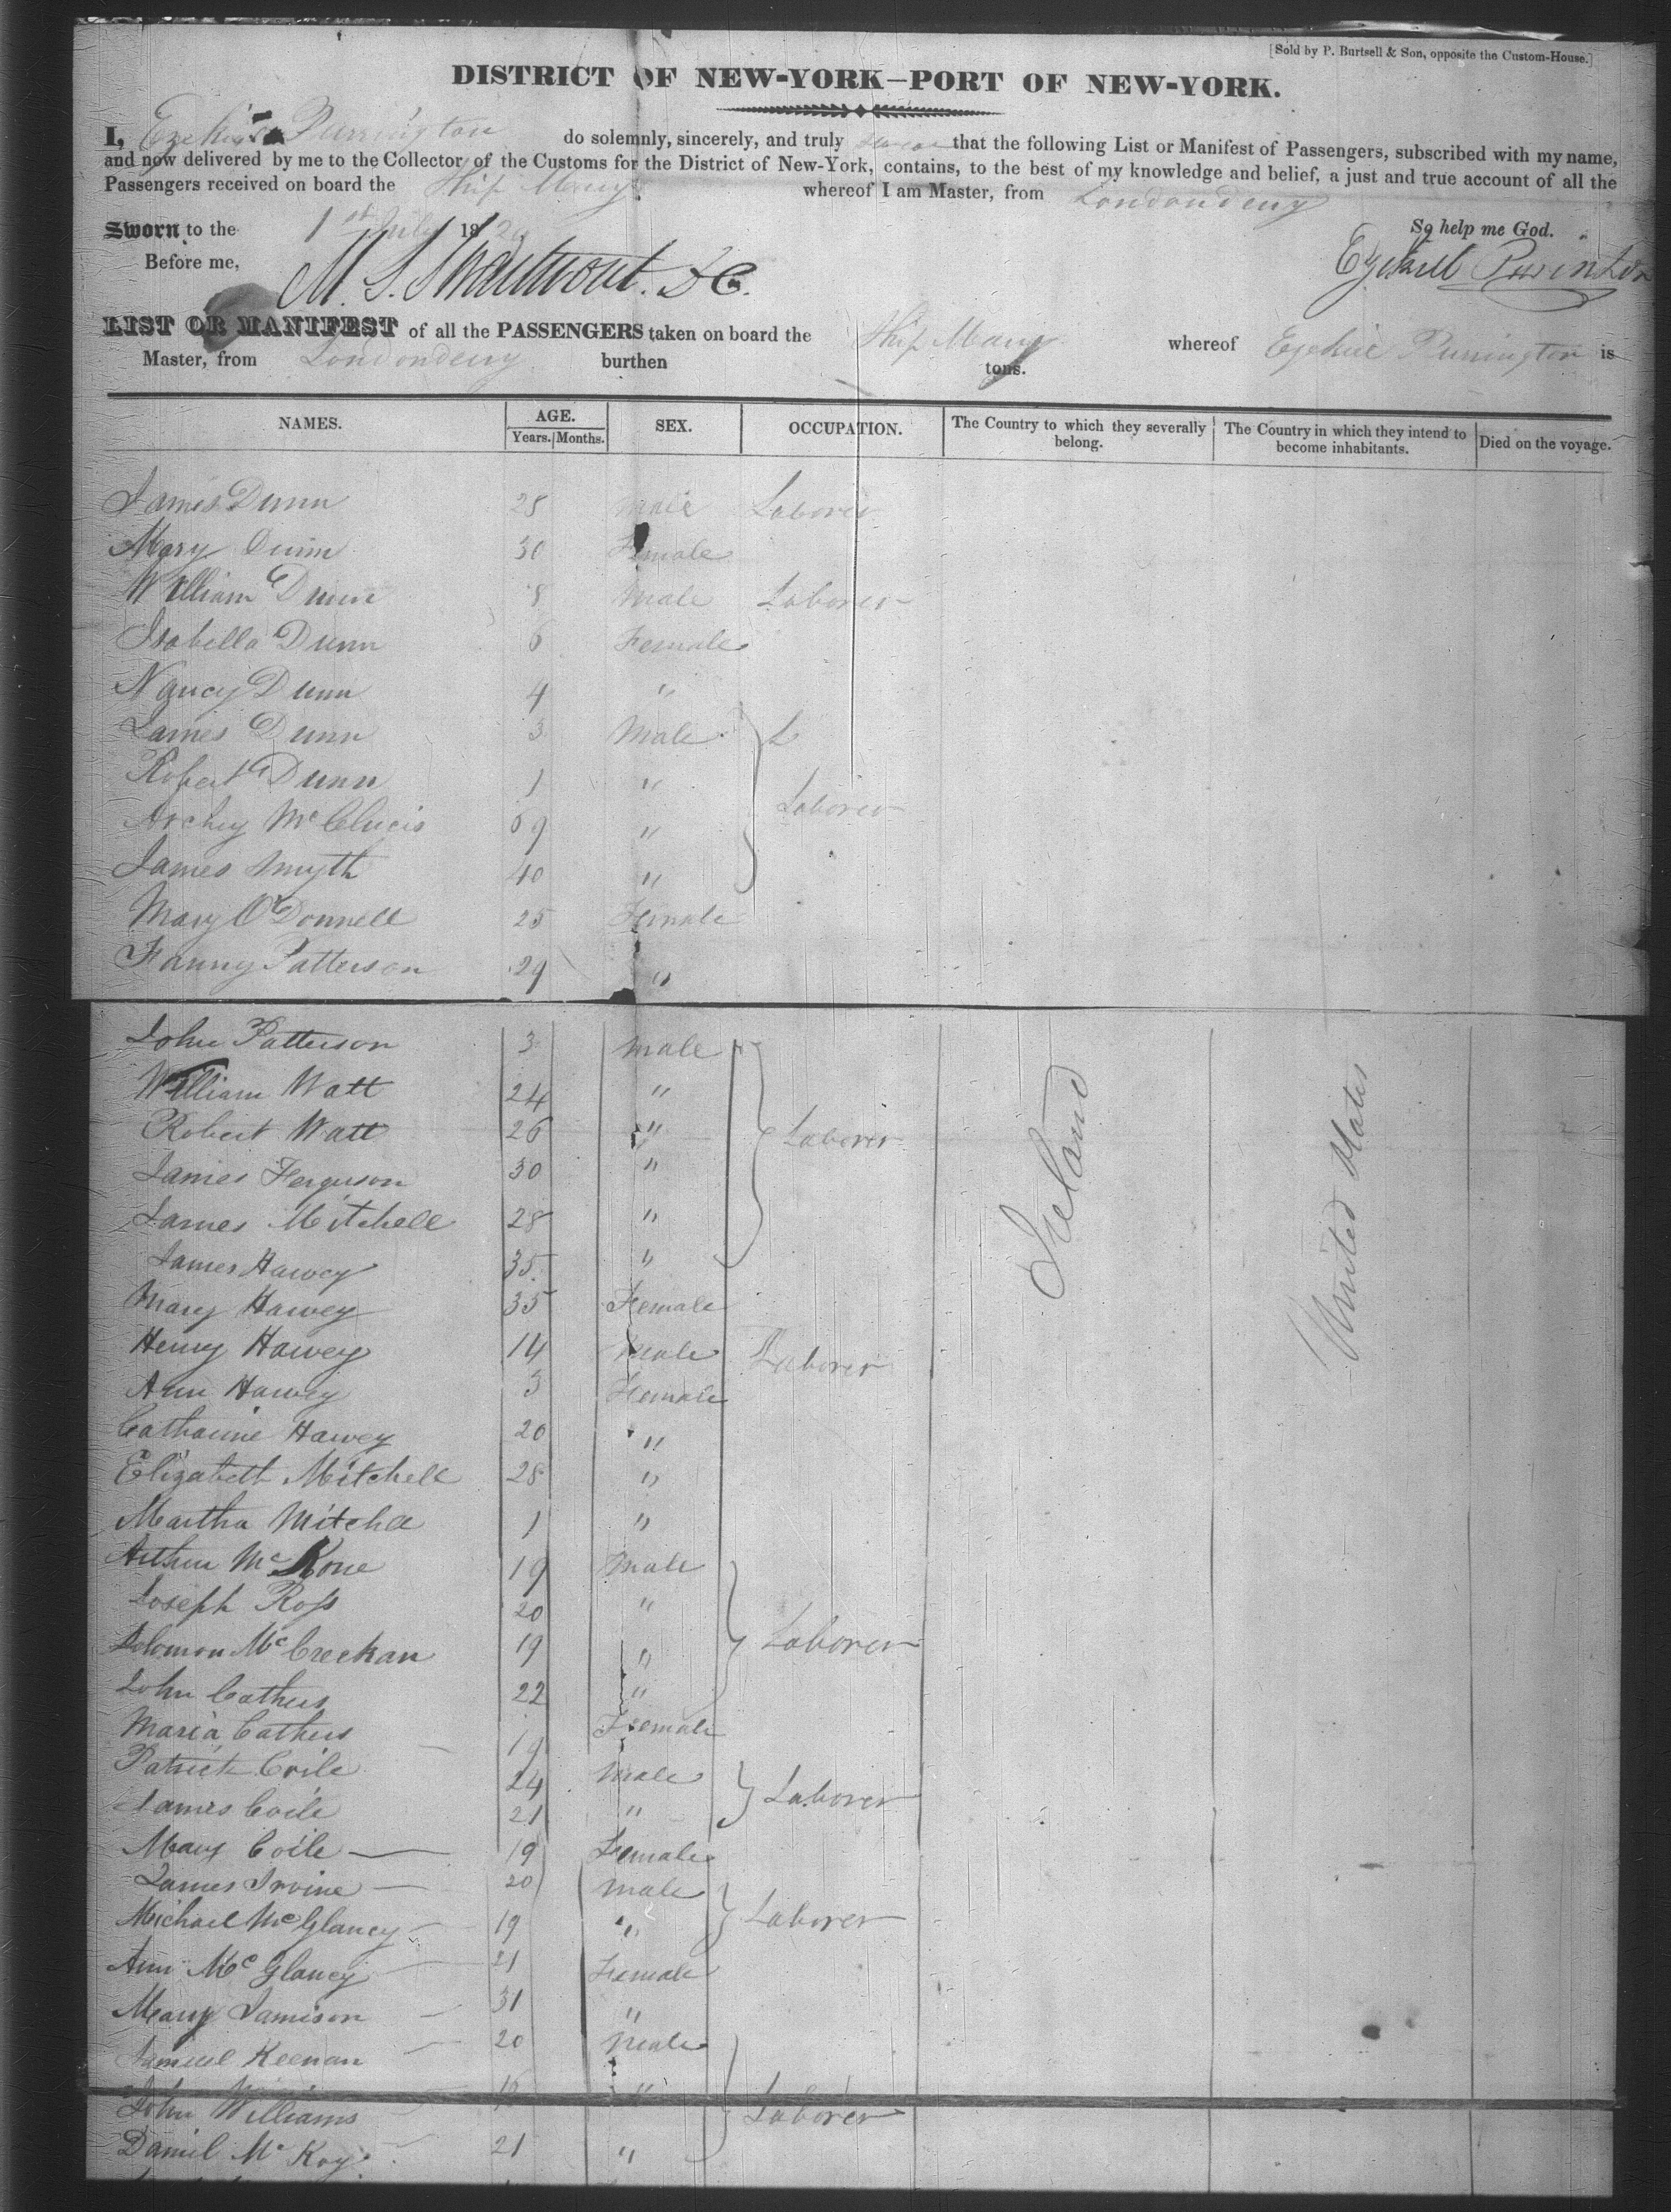 [Sold by P. Burtsell & Son, opposite the Custom-House.]
DISTRICT OF NEW-YORK—PORT OF NEW-YORK.
I, Ezekiel Purrington do solemnly, sincerely, and truly swear that the following List or Manifest of Passengers, subscribed with my name,
and now delivered by me to the Collector of the Customs for the District of New-York, contains, to the best of my knowledge and belief, a just and true account of all the
Passengers received on board the Ship Mary whereof I am Master, from Londonderry
Sworn to the 1st July 18 So help me God.
Before me, M. S. Swartwout. D C. Ezekiell Purinton
LIST OR MANIFEST of all the PASSENGERS taken on board the Ship Mary whereof Ezekiel Purrington is
Master, from Londonderry burthen tons.
NAMES. AGE. Years. Months. SEX. OCCUPATION. The Country to which they severally belong. The Country in which they intend to become inhabitants. Died on the voyage.
James Dunn 25 Male Laborer
Mary Dunn 30 Female
William Dunn 8 Male Laborer
Isabella Dunn 6 Female
Nancy Dunn 4 "
James Dunn 3 Male L
Robert Dunn 1 "
Archey Mc 69 " Laborer
James Smyth 40 "
Mary O'Donnell 25 Female
Fanny Patterson 29 "
John Patterson 3 Male
William Watt 24 "
Robert Watt 26 " Laborer
James Ferguson 30 "
James Mitchell 28 "
James Harvey 35 "
Mary Harvey 35 Female
Henry Harvey 14 Male Laborer
Ann Harvey 3 Female
Catharine Harvey 20 "
Elizabeth Mitchell 28 "
Martha Mitchell 1 "
Arthur McKone 19 Male
Joseph Ross 20 "
Solomon McCreekan 19 " Laborer
John Cathers 22 "
Maria Cathers 19 Female
Patrick Coile 24 Male Laborer
James Coile 21 "
Mary Coile 19 Female
James Irvine 20 Male
Michael McGlancy 19 " Laborer
Ann McGlancy 21 Female
Mary Jamison 31 "
Samuel Keenan 20 Male
John Williams " Laborer
Daniel McKoy 21 "
Ireland
United States